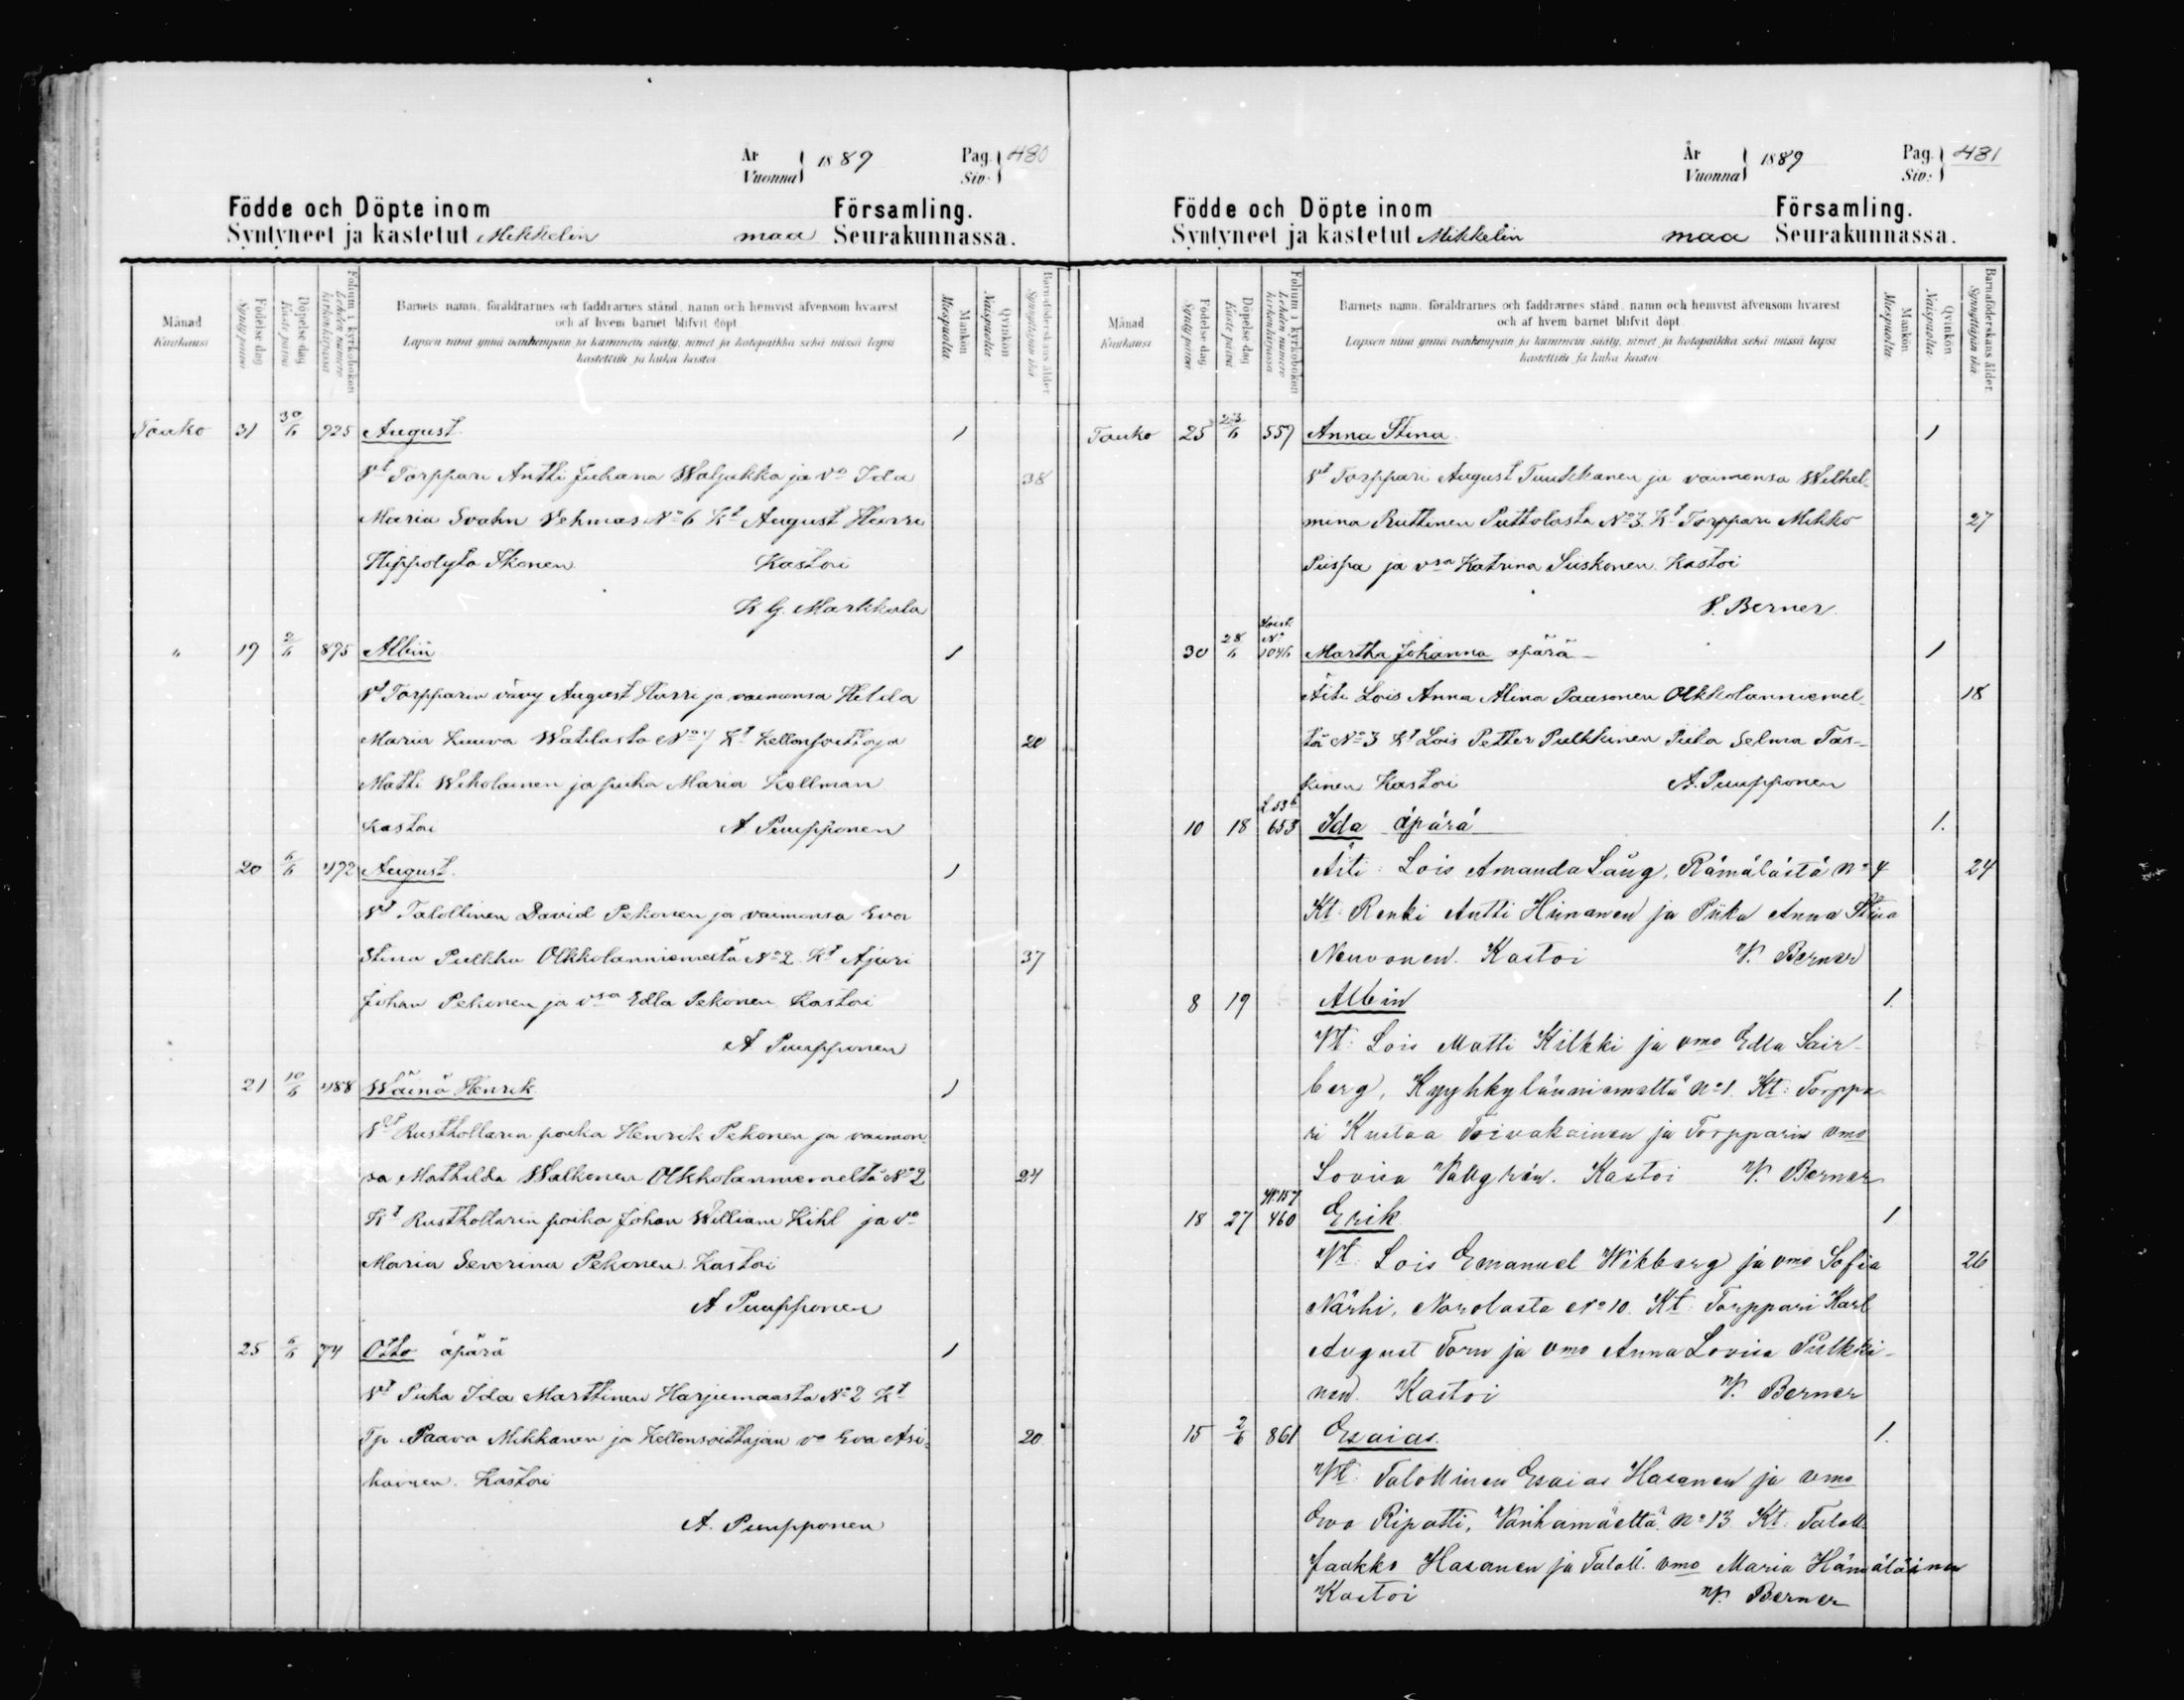 År
Vuonna 1889
Pag.
Siv: 480
Födde och Döpte inom Församling.
Syntyneet ja kastetut Mikkelin maa Seurakunnassa.
Månad
Kuukausi
Födelse dag
Syntymäpäivä
Döpelse dag
Kastepäivä
Folium i kyrkoboken
Lehden numero kirkonkirjassa
Barnets namn, föräldrarnes och faddrarnes stånd, namn och hemvist äfvensom hvarest
och af hvem barnet blifvit döpt.
Lapsen nimi ynnä vanhempain ja kummein sääty, nimet ja kotopaikka sekä missä lapsi
kastettiin ja kuka kastoi
Mankön
Miespuolta
Qvinkön
Naispuolta
Barnaföderskans ålder
Synnyttäjän ikä
Touko 31 30/6 925 August 1
Vt Torppari Antti Juhana Waljakka ja vo Ida 38
Maria Svahn Vehmas No 6 Kt August Harri
Hippolyta Ikonen Kastoi
K G. Markkula
" 19 2/6 895 Albin 1
Vt Torpparin vävy August Harri ja vaimonsa Hilda
Maria Kuuva Watilasta No 7 Kt Kellonsoittaja 20
Matti Wiholainen ja piika Maria Kollman
kastoi A Pumpponen
20 6/6 492 August 1
Vt Talollinen David Pekonen ja vaimonsa Eva
Stina Pulkka Olkkolanniemeltä No 2 Kt Ajuri 37
Johan Pekonen ja vsa Edla Pekonen Kastoi
A Pumpponen
21 10/6 488 Wäinö Henrik 1
Vt Rusthollarin poika Henrik Pekonen ja vaimon
sa Mathilda Walkonen Olkkolanniemeltä No 2 24
Kt Rusthollarin poika Johan William Kihl ja vo
Maria Severina Pekonen Kastoi
A Pumpponen
25 6/6 74 Otto äpärä 1
Vt Piika Ida Marttinen Harjumaasta No 2 Kt
Tp Paavo Mikkanen ja Kellonsoittajan vo Eva Asi- 20
kainen. Kastoi
A. Pumpponen
År
Vuonna 1889
Pag.
Siv: 481
Födde och Döpte inom Församling.
Syntyneet ja kastetut Mikkelin maa Seurakunnassa.
Månad
Kuukausi
Födelse dag
Syntymäpäivä
Döpelse dag
Kastepäivä
Folium i kyrkoboken
Lehden numero kirkonkirjassa
Barnets namn, föräldrarnes och faddrarnes stånd, namn och hemvist äfvensom hvarest
och af hvem barnet blifvit döpt.
Lapsen nimi ynnä vanhempain ja kummein sääty, nimet ja kotopaikka sekä missä lapsi
kastettiin ja kuka kastoi
Mankön
Miespuolta
Qvinkön
Naispuolta
Barnaföderskans ålder
Synnyttäjän ikä
Touko 25 23/6 557 Anna Stina 1
Vt Torppari August Tuukkanen ja vaimonsa Wilhel-
mina Ruttinen Pittolasta No 3. Kt Torppari Mikko 27
Piispa ja vsa Katrina Siiskonen. Kastoi
V. Berner
30 28/6 No 1046 Martha Johanna äpärä 1
Äiti Lois Anna Alina Paasonen Olkkolanniemel- 18
tä No 3 Kt Lois Petter Pulkkinen Piika Selma Tas-
kinen Kastoi A. Pumpponen
10 18 653 Ida äpärä 1.
Äiti: Lois Amanda Lång, Rämälästä No 4 24
Kt: Renki Antti Hiinanen ja Piika Anna Stina
Neuvonen. Kastoi V. Berner
8 19 Albin 1.
Vt: Lois Matti Kilkki ja vmo Edla Sair-
berg, Kyyhkylänniemeltä No 1. Kt: Torppa-
ri Kustaa Toivakainen ja Torpparin vmo
Lovisa Vallgrén. Kastoi V. Berner
18 27 460 Erik 1
Vt: Lois Emanuel Wikberg ja vmo Sofia 26
Närhi, Norolasta No 10. Kt: Torppari Karl
August Torn ja vmo Anna Lovisa Pulkki-
nen. Kastoi V. Berner
15 2/6 861 Esaias 1.
Vt: Talollinen Esaias Hasanen ja vmo
Eva Ripatti, Vanhamäeltä No 13 Kt: Taloll.
Jaakko Hasanen ja Taloll. vmo Maria Hämäläinen
Kastoi V. Berner